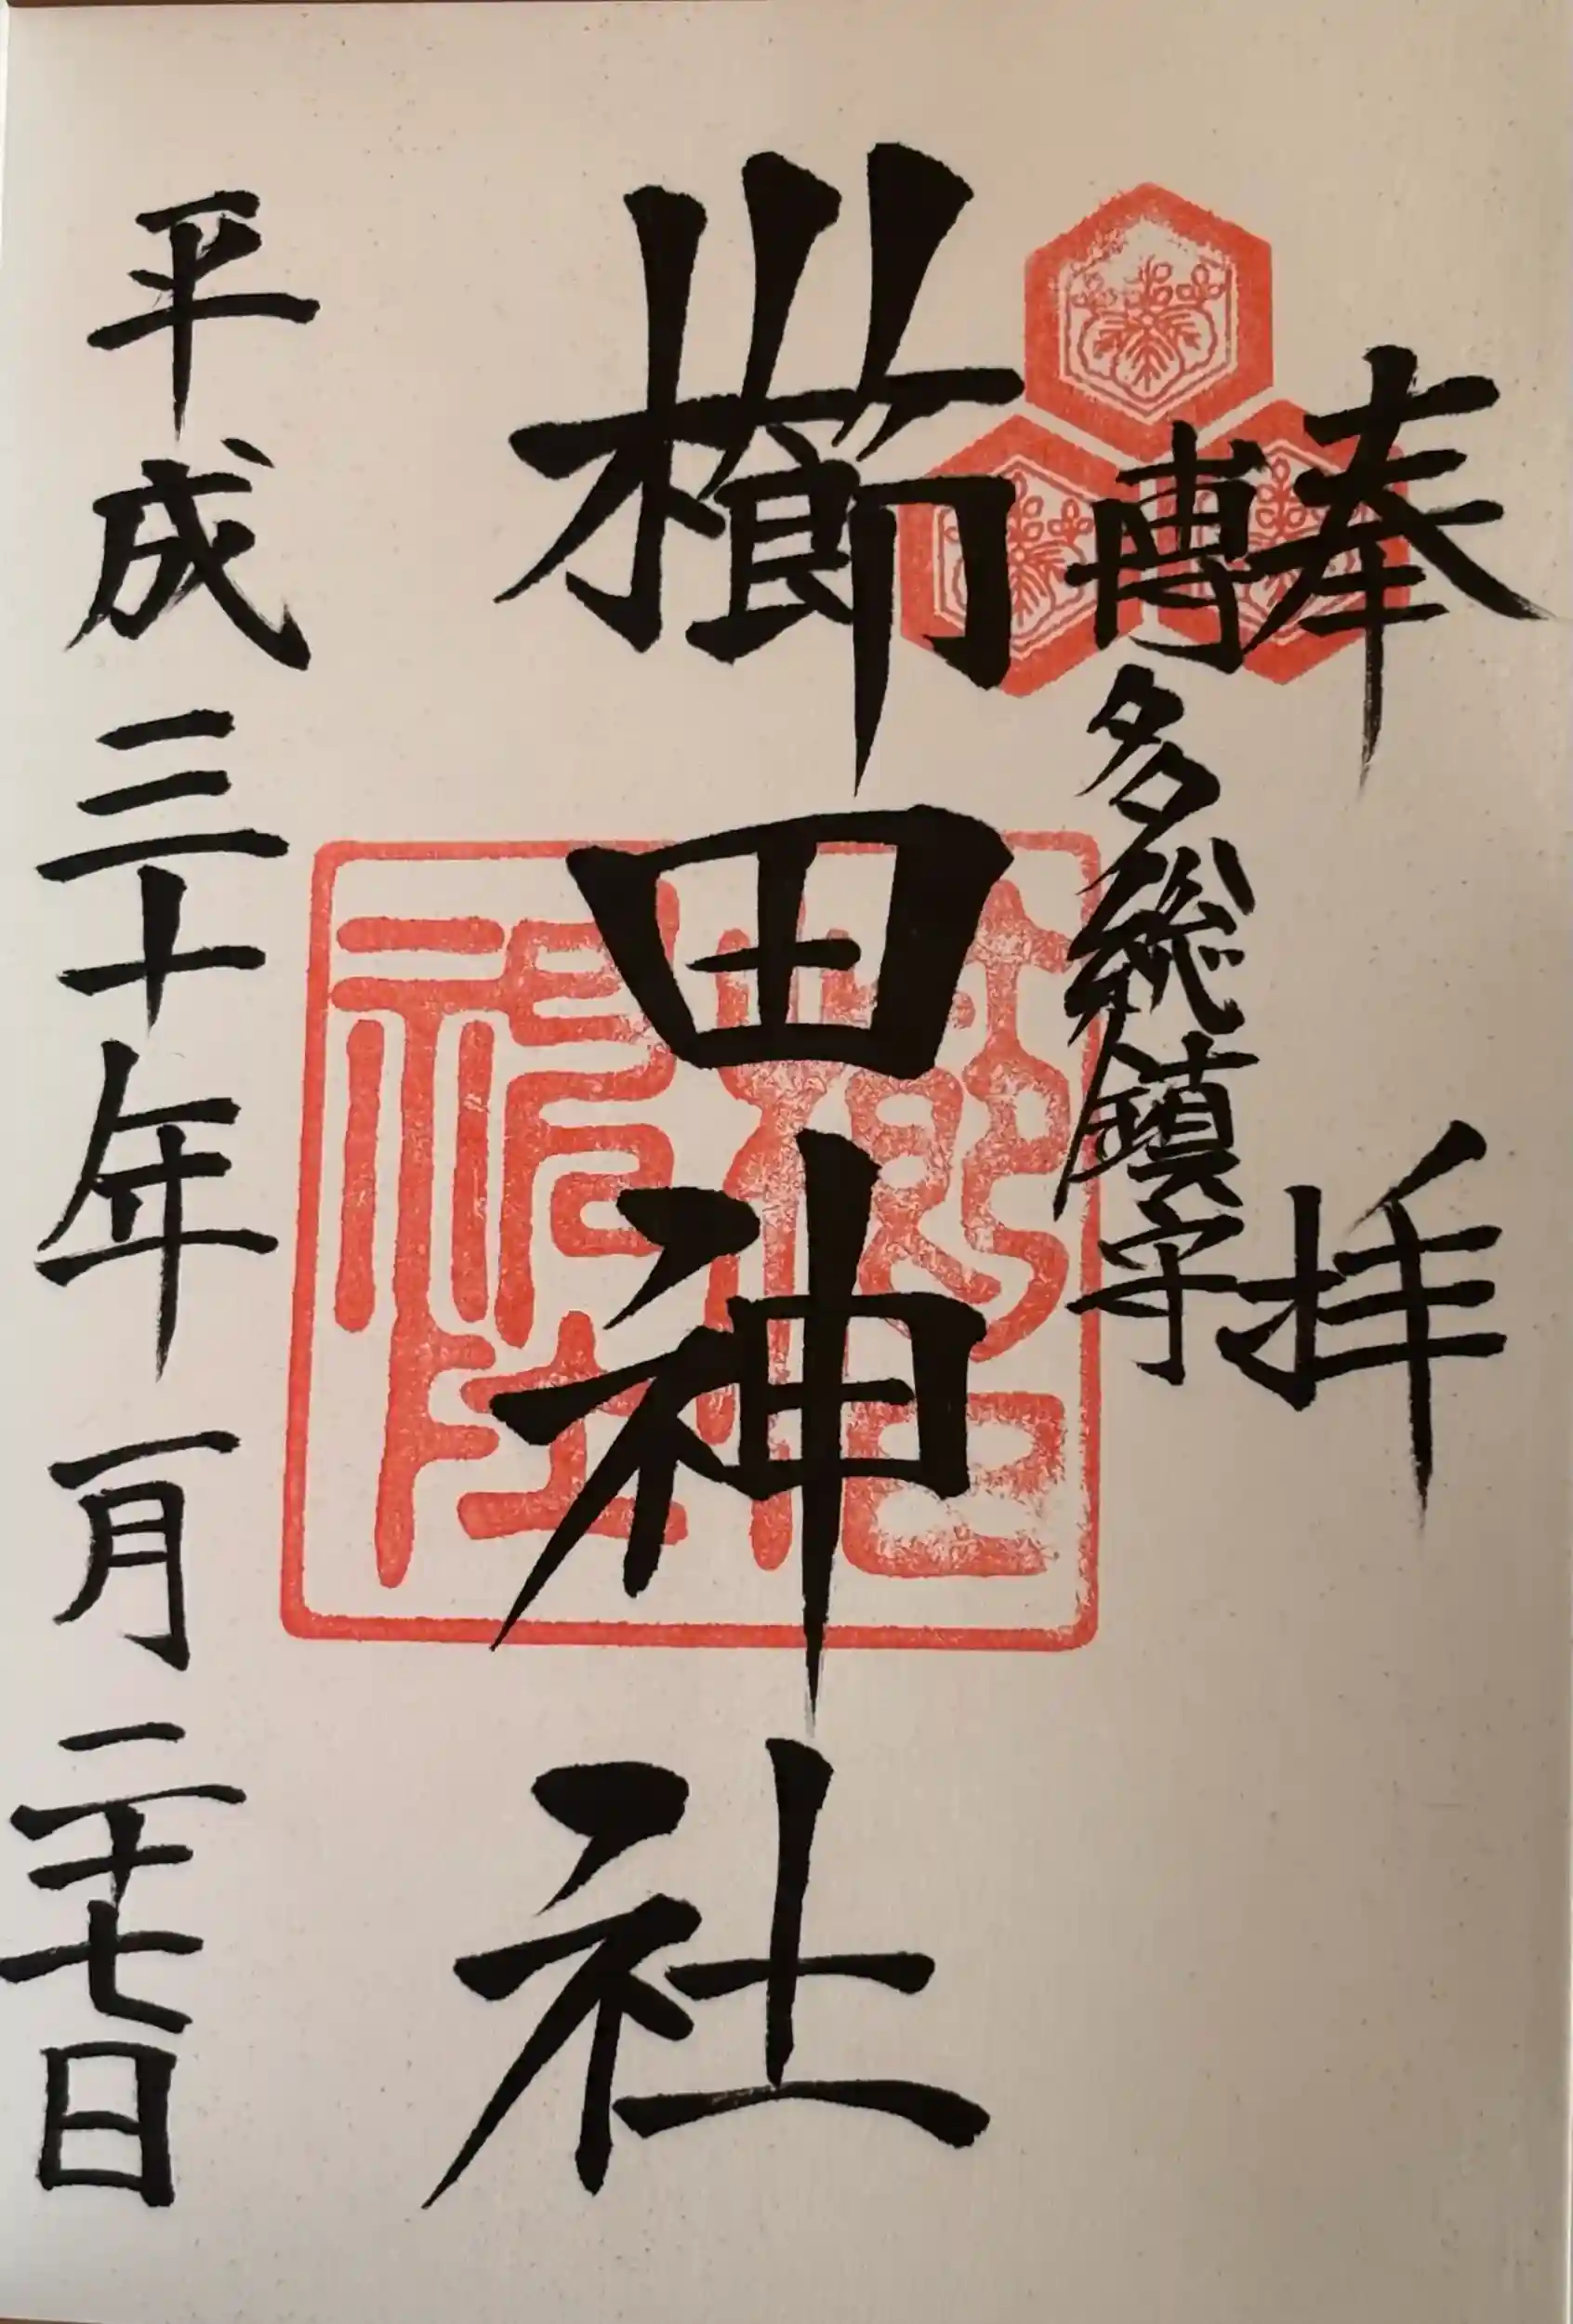 奉拝
博多総鎮守
櫛田神社
平成三十年一月二十七日
櫛田
神社